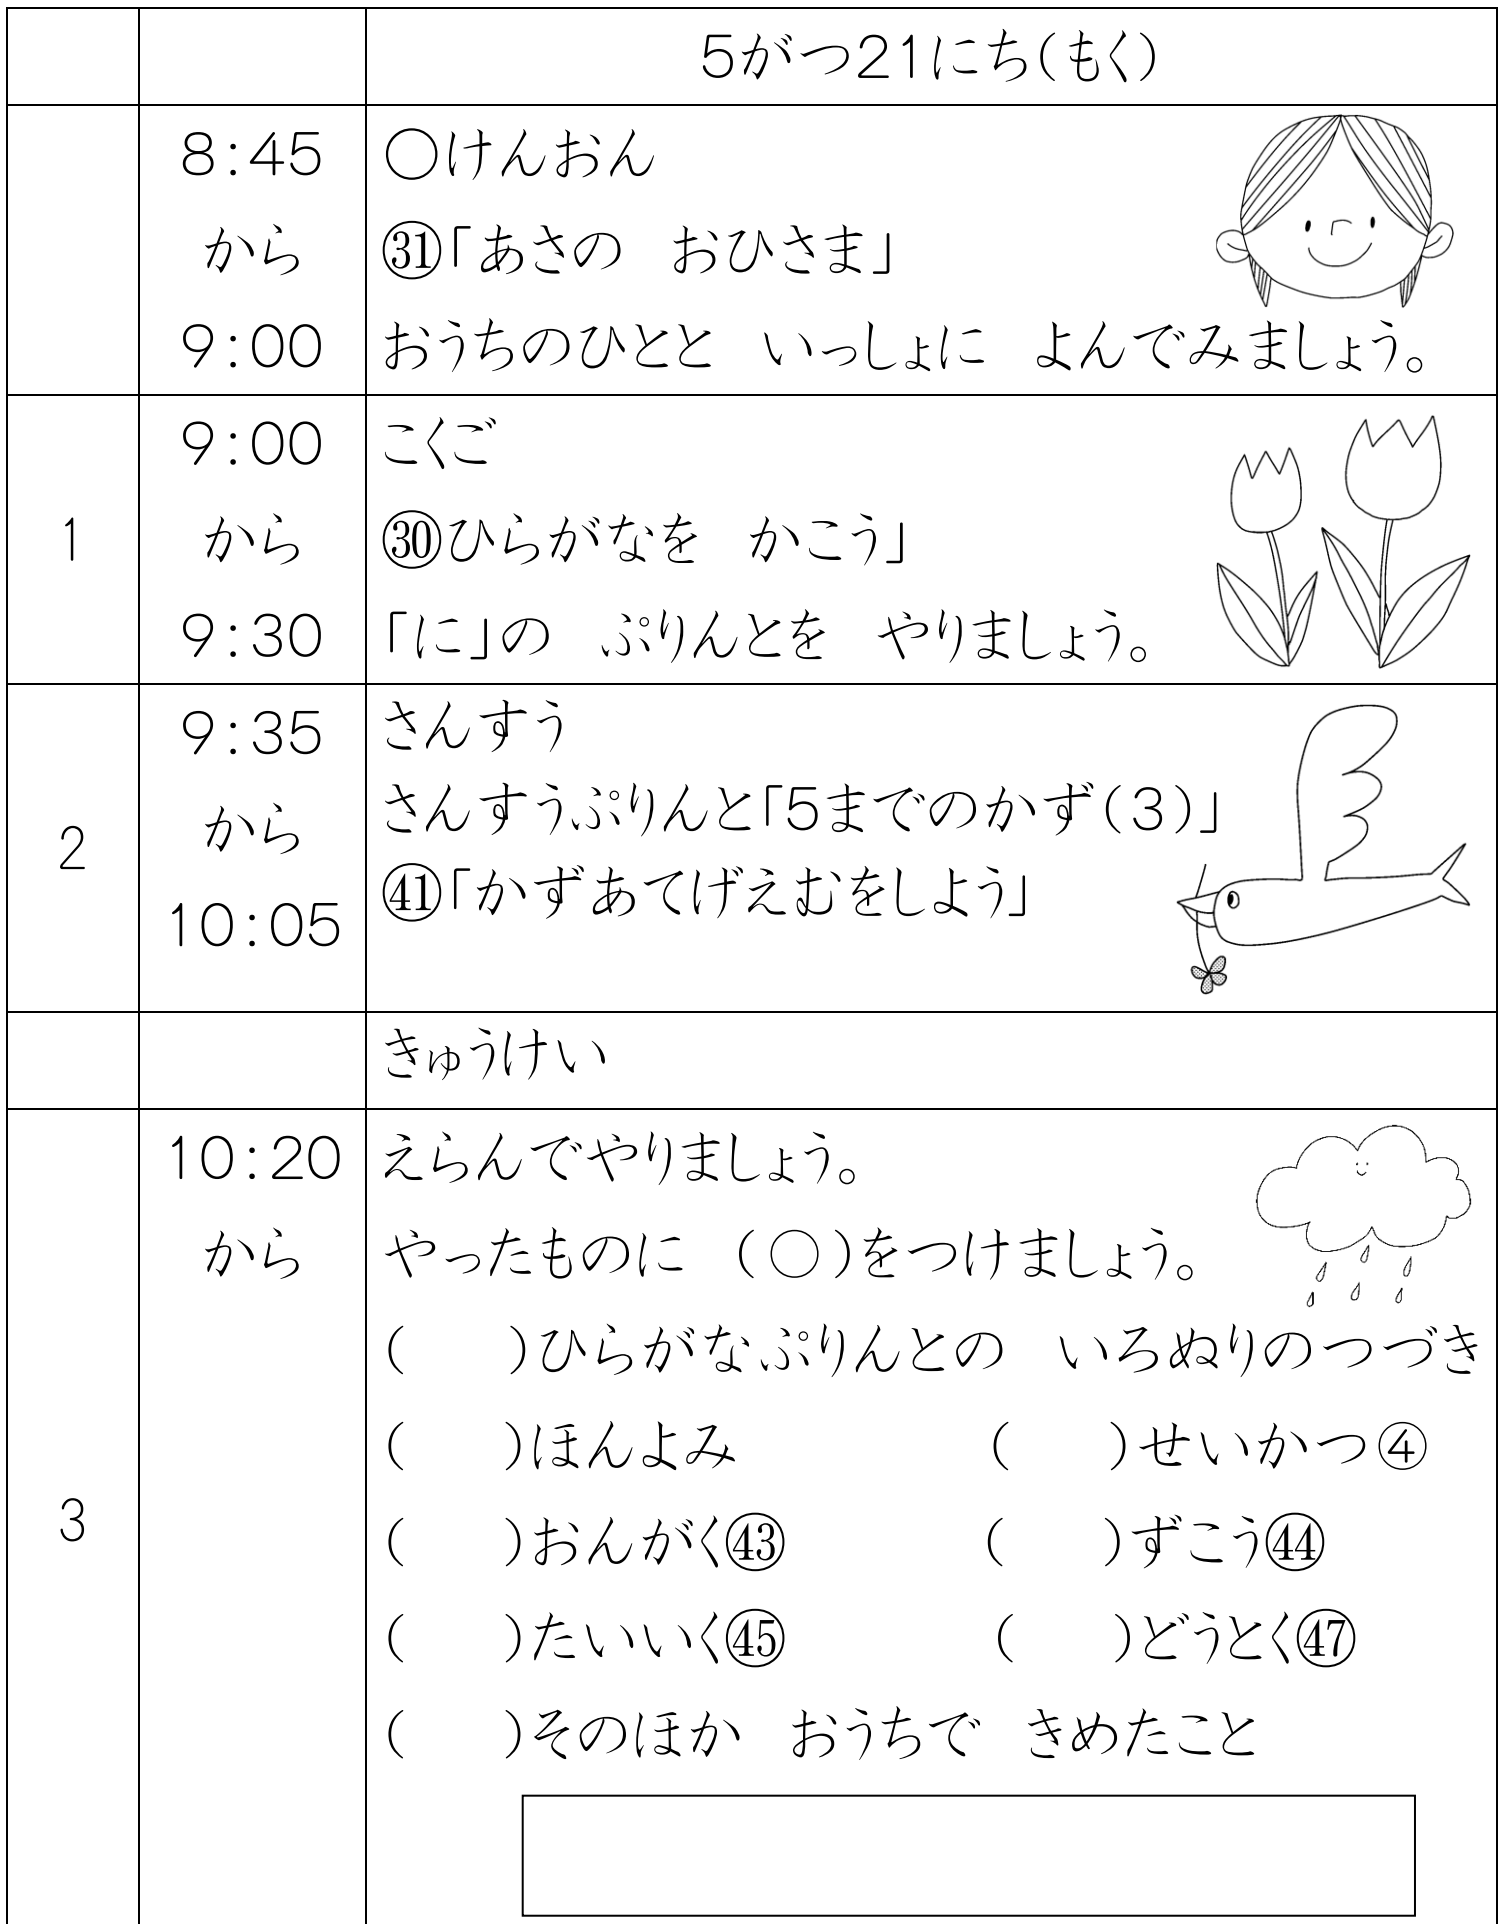 5がつ21にち(もく)
8:45
から
9:00
○けんおん
㉛「あさの　おひさま」
おうちのひとと　いっしょに　よんでみましょう。
1
9:00
から
9:30
こくご
㉚ひらがなを　かこう」
「に」の　ぷりんとを　やりましょう。
2
9:35
から
10:05
さんすう
さんすうぷりんと「5までのかず(3)」
㊶「かずあてげえむをしよう」
きゅうけい
3
10:20
から
えらんでやりましょう。
やったものに　(○)をつけましょう。
(　　)ひらがなぷりんとの　いろぬりのつづき
(　　)ほんよみ　　　　　(　　)せいかつ④
(　　)おんがく㊸　　　　(　　)ずこう㊹
(　　)たいいく㊺　　　　(　　)どうとく㊼
(　　)そのほか　おうちで　きめたこと